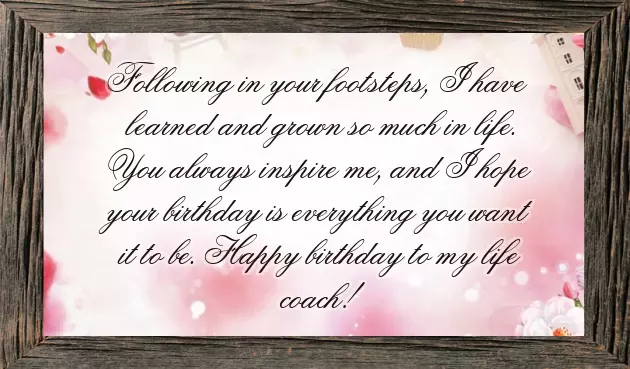 Following in your footsteps, I have
learned and grown so much in life.
You always inspire me, and I hope
your birthday is everything you want
it to be. Happy birthday to my life
coach!